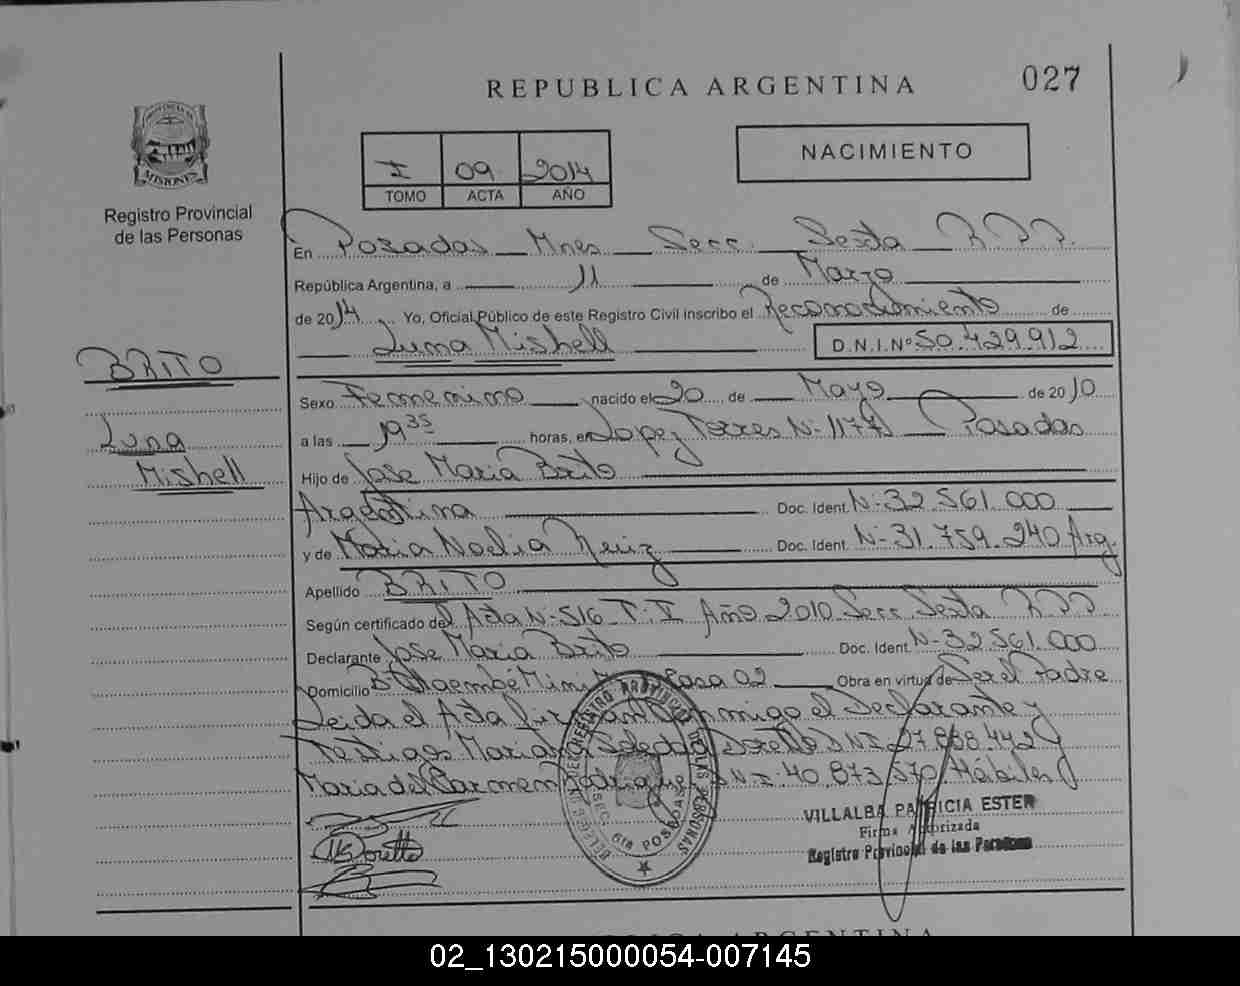 REPUBLICA ARGENTINA
027
PROVINCIA DE
MISIONES
Registro Provincial
de las Personas
I 09 2014
TOMO ACTA AÑO
NACIMIENTO
BRITO
Luna
Mishell
En Posadas Mnes Secc. Sexta RPP.
República Argentina, a 11 de Marzo
de 2014 Yo, Oficial Público de este Registro Civil inscribo el Reconocimiento de
Luna Mishell D.N.I.Nº 50.429.912
Sexo Femenino nacido el 20 de Mayo de 2010
a las 19 35 horas, en Lopez Torres N-1177 Posadas
Hijo de Jose Maria Brito
Argentina Doc. Ident. N-32.561.000
y de Maria Noelia Ruiz Doc. Ident. N-31.759.240 Arg.
Apellido BRITO
Según certificado del Acta N-516 T-I Año 2010 Secc Sexta RPP
Declarante Jose Maria Brito Doc. Ident. N-32.561.000
Domicilio Bº Itaembé Mini Casa 02 Obra en virtud de Ser el Padre
Leida el Acta firman Conmigo el Declarante y
Testigos Mariana Soledad Doretto DNI 27.808.442 y
Maria del Carmen Rodrigue DNI 40.873.570 Hábiles
REGISTRO PROVINCIAL DE LAS PERSONAS
SEC. 6ta POSADAS
MSDoretto
VILLALBA PATRICIA ESTER
Firma Autorizada
Registro Provincial de las Personas
REPUBLICA ARGENTINA
02_130215000054-007145